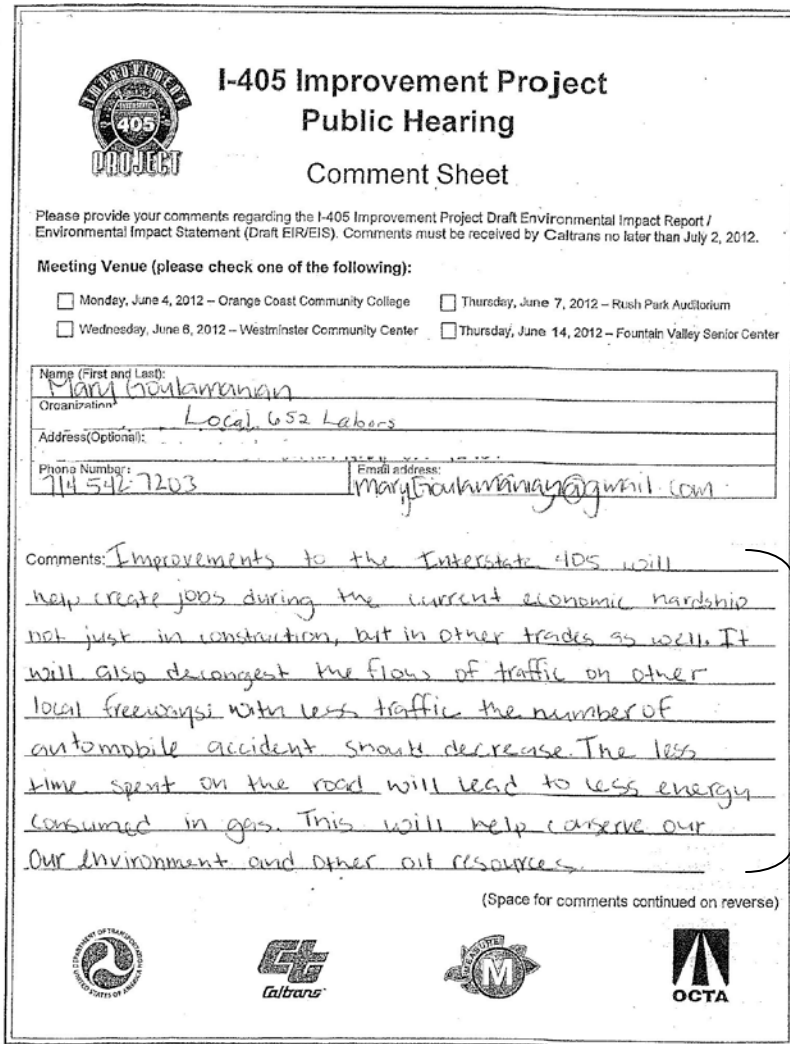 IMPROVEMENT
405
PROJECT
I-405 Improvement Project
Public Hearing
Comment Sheet
Please provide your comments regarding the I-405 Improvement Project Draft Environmental Impact Report /
Environmental Impact Statement (Draft EIR/EIS). Comments must be received by Caltrans no later than July 2, 2012.
Meeting Venue (please check one of the following):
Monday, June 4, 2012 – Orange Coast Community College
Thursday, June 7, 2012 – Rush Park Auditorium
Wednesday, June 6, 2012 – Westminster Community Center
Thursday, June 14, 2012 – Fountain Valley Senior Center
Name (First and Last):
Mary Goulamanian
Organization
Local 652 Labors
Address(Optional):
Phone Number:
714 542-7203
Email address:
maryGoulamanian@gmail.com
Comments: Improvements to the Interstate 405 will
help create jobs during the current economic hardship
not just in construction, but in other trades as well. It
will also decongest the flows of traffic on other
local freeways; with less traffic the number of
automobile accident should decrease. The less
time spent on the road will lead to less energy
consumed in gas. This will help conserve our
our environment and other oil resources.
(Space for comments continued on reverse)
DEPARTMENT OF TRANSPORTATION
UNITED STATES OF AMERICA
Caltrans
MEASURE
M
OCTA